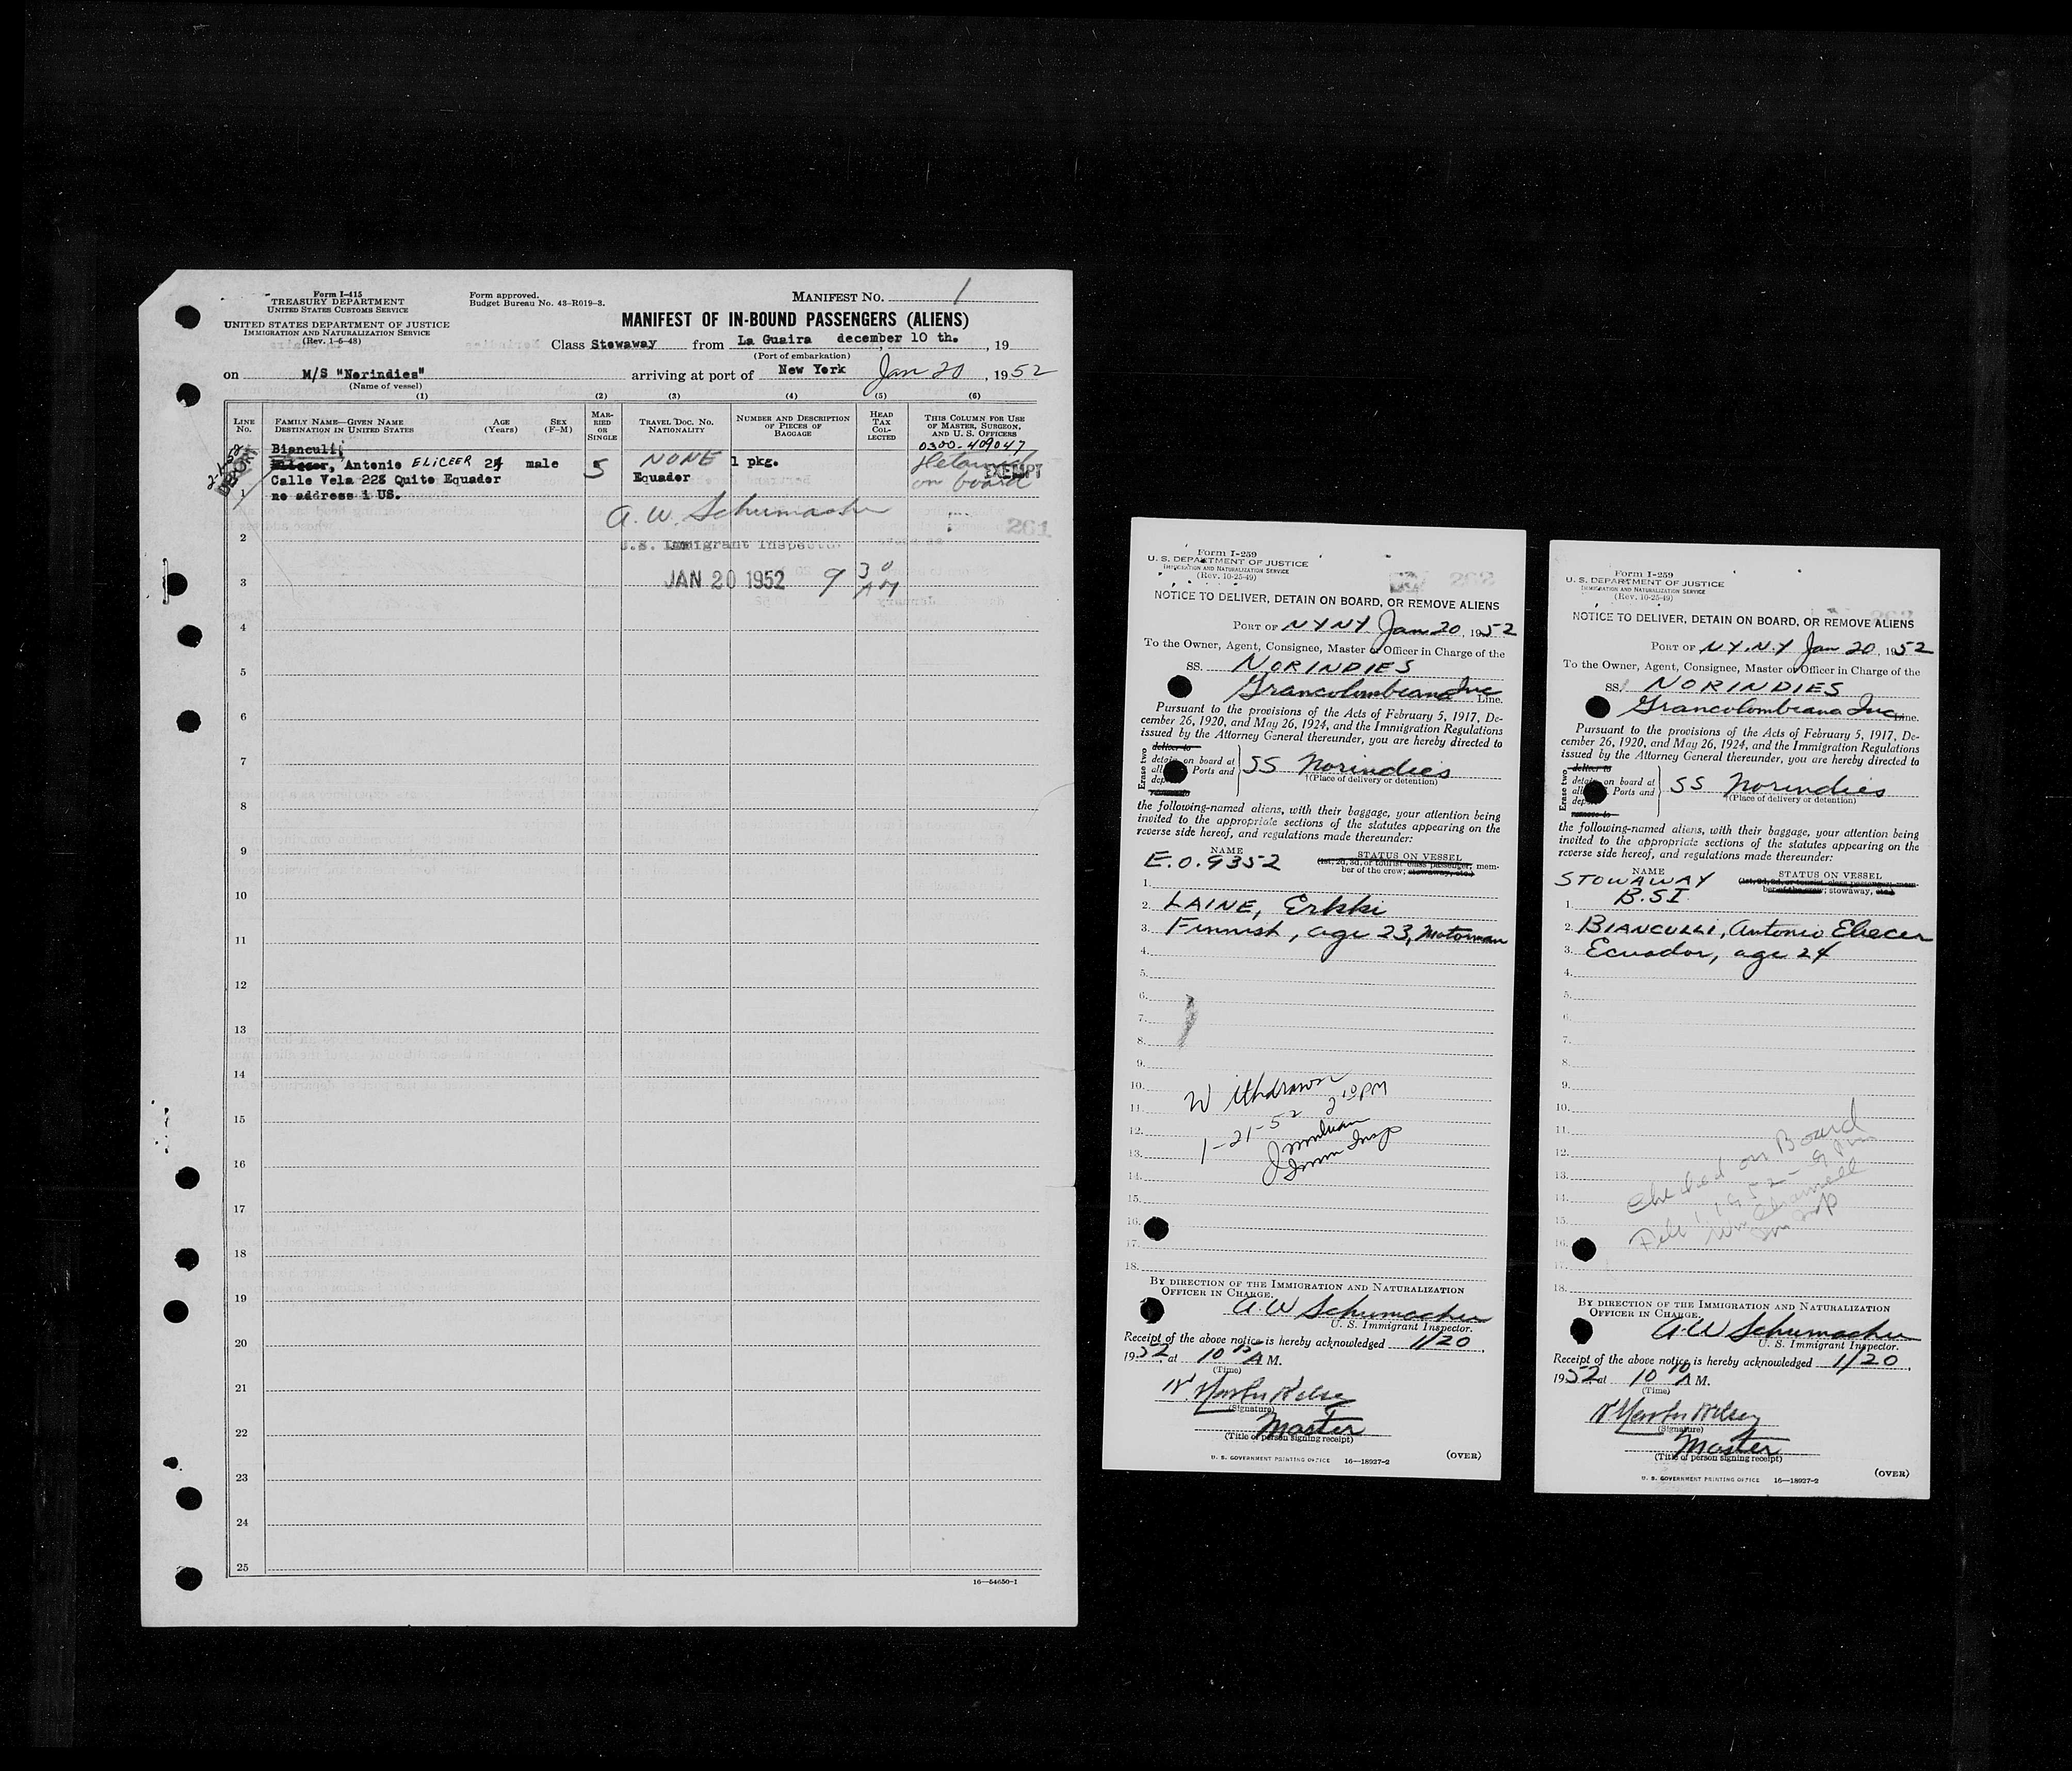 Form I-415
TREASURY DEPARTMENT
UNITED STATES CUSTOMS SERVICE
UNITED STATES DEPARTMENT OF JUSTICE
IMMIGRATION AND NATURALIZATION SERVICE
(Rev. 1-6-48)
Form approved.
Budget Bureau No. 43-R019-3.
MANIFEST NO. 1
MANIFEST OF IN-BOUND PASSENGERS (ALIENS)
Class Stowaway from La Guaira december 10 th. , 19
(Port of embarkation)
on M/S "Norindies" arriving at port of New York Jan 20, 1952
(Name of vessel)
(1) (2) (3) (4) (5) (6)
LINE No.
FAMILY NAME—GIVEN NAME
DESTINATION IN UNITED STATES
AGE (Years)
SEX (F-M)
MARRIED OR SINGLE
TRAVEL DOC. NO. NATIONALITY
NUMBER AND DESCRIPTION OF PIECES OF BAGGAGE
HEAD TAX COLLECTED
THIS COLUMN FOR USE OF MASTER, SURGEON, AND U. S. OFFICERS
0300-409047
Bianculli
Antonio ELICEER 24 male S NONE 1 pkg.
Detained on board
EXEMPT
Calle Vela 228 Quito Equador Equador
no address i US.
1
A. W. Schumacher
261
2
U.S. Immigrant Inspector
3
JAN 20 1952 9 30 AM
4
5
6
7
8
9
10
11
12
13
14
15
16
17
18
19
20
21
22
23
24
25
16—54650-1
Form I-259
U. S. DEPARTMENT OF JUSTICE
IMMIGRATION AND NATURALIZATION SERVICE
(Rev. 10-25-49)
262
NOTICE TO DELIVER, DETAIN ON BOARD, OR REMOVE ALIENS
PORT OF NYNY Jan 20, 1952
To the Owner, Agent, Consignee, Master or Officer in Charge of the
SS. NORINDIES
Grancolombiana Inc Line.
Pursuant to the provisions of the Acts of February 5, 1917, De-
cember 26, 1920, and May 26, 1924, and the Immigration Regulations
issued by the Attorney General thereunder, you are hereby directed to
Erase two
deliver to
detain on board at
all Ports and
remove to
SS Norindies
(Place of delivery or detention)
the following-named aliens, with their baggage, your attention being
invited to the appropriate sections of the statutes appearing on the
reverse side hereof, and regulations made thereunder:
NAME STATUS ON VESSEL
E.O. 9352 (1st, 2d, 3d, or tourist class passenger; mem-
ber of the crew; stowaway, etc.)
1.
2. LAINE, Erkki
3. Finnish, age 23, Motorman
4.
5.
6.
7.
8.
9.
10.
11.
12.
13.
14.
15.
16.
17.
18.
Withdrawn
1-21-52 2 10 PM
Imm Insp
BY DIRECTION OF THE IMMIGRATION AND NATURALIZATION
OFFICER IN CHARGE.
A. W Schumacher
U. S. Immigrant Inspector.
Receipt of the above notice is hereby acknowledged 1/20,
1952, at 10 AM.
(Time)
(Signature)
Master
(Title of person signing receipt)
U. S. GOVERNMENT PRINTING OFFICE 16—18927-2
(OVER)
Form I-259
U. S. DEPARTMENT OF JUSTICE
IMMIGRATION AND NATURALIZATION SERVICE
(Rev. 10-25-49)
263
NOTICE TO DELIVER, DETAIN ON BOARD, OR REMOVE ALIENS
PORT OF N.Y.N.Y Jan 20, 1952
To the Owner, Agent, Consignee, Master or Officer in Charge of the
SS. NORINDIES
Grancolombiana Inc Line.
Pursuant to the provisions of the Acts of February 5, 1917, De-
cember 26, 1920, and May 26, 1924, and the Immigration Regulations
issued by the Attorney General thereunder, you are hereby directed to
Erase two
deliver to
detain on board at
all Ports and
remove to
SS Norindies
(Place of delivery or detention)
the following-named aliens, with their baggage, your attention being
invited to the appropriate sections of the statutes appearing on the
reverse side hereof, and regulations made thereunder:
NAME STATUS ON VESSEL
STOWAWAY (1st, 2d, 3d, or tourist class passenger; mem-
ber of the crew; stowaway, etc.)
B.S.I.
1.
2. BIANCULLI, Antonio Eliecer
3. Ecuador, age 24
4.
5.
6.
7.
8.
9.
10.
11.
12.
13.
14.
15.
16.
17.
18.
Checked on Board
Feb 1, 1952 - 9 pm
Imm Insp
BY DIRECTION OF THE IMMIGRATION AND NATURALIZATION
OFFICER IN CHARGE.
A. W Schumacher
U. S. Immigrant Inspector.
Receipt of the above notice is hereby acknowledged 1/20,
1952, at 10 10 AM.
(Time)
(Signature)
Master
(Title of person signing receipt)
U. S. GOVERNMENT PRINTING OFFICE 16—18927-2
(OVER)